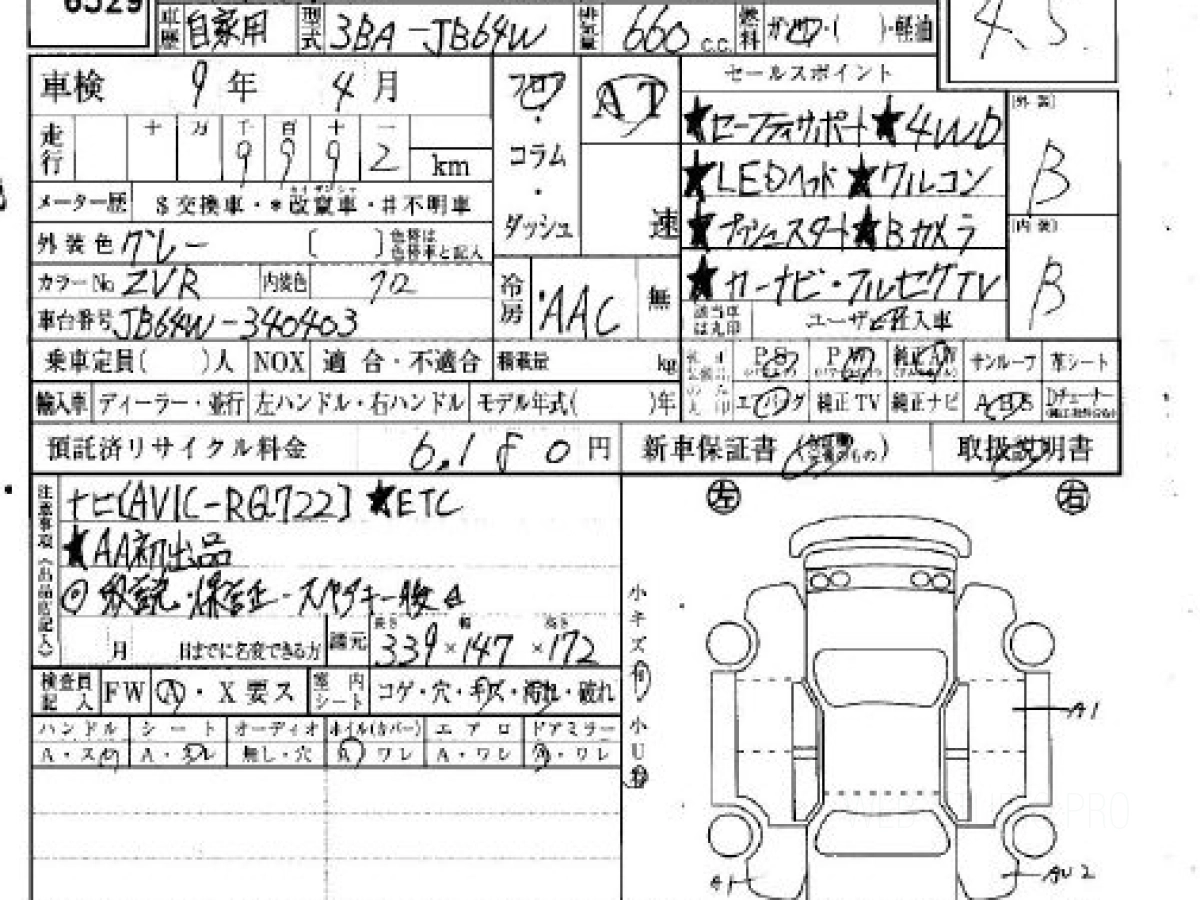 6529
車歴 自家用 型式 3BA-JB64W 排気量 660 c.c. 燃料 ガソリン・( )・軽油
4.5
車検 9年 4月
フロア・コラム・ダッシュ
AT 速
セールスポイント
★セーフティサポート★4WD
★LEDヘッド★クルコン
★プッシュスタート★Bカメラ
★カーナビ・フルセグTV
[外装] B
[内装] B
走行 十 万 千 百 十 一
9 9 9 2 km
メーター歴 $交換車・*改竄車・#不明車
カイザンシャ
外装色 グレー [ ] 色替は色替車と記入
カラーNo ZVR 内装色 クロ
冷房 AAC 無
車台番号 JB64W-340403
該当車は丸印 ユーザー買入車
乗車定員( )人 NOX 適合・不適合 積載量 kg
PS PW 純正AW サンルーフ 革シート
輸入車 ディーラー・並行 左ハンドル・右ハンドル モデル年式( )年
エアバッグ 純正TV 純正ナビ ABS Dチューナー
預託済リサイクル料金 6,180円 新車保証書 取扱説明書
左 右
注意事項《出品店記入》
ナビ[AVIC-RQ722] ★ETC
★AA初出品
◎取説・保証正・スペアキー後
月 日までに名変できる方 諸元 長さ 339 × 幅 147 × 高さ 172
検査員記入 FW A・X要ス 室内シート コゲ・穴・キズ・汚れ・破れ
ハンドル シート オーディオ ホイル(カバー) エアロ ドアミラー
A・スレ A・スレ 無し・穴 A ワレ A・ワレ A・ワレ
小キズ有
小U
A1
A1
AU2